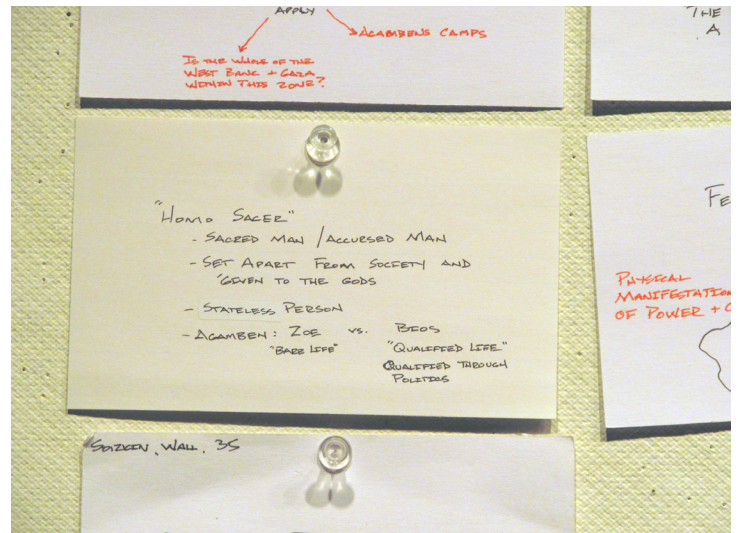 APPLY
AGAMBENS CAMPS
IS THE WHOLE OF THE
WEST BANK + GAZA
WITHIN THIS ZONE?
THE
A
"HOMO SACER"
- SACRED MAN / ACCURSED MAN
- SET APART FROM SOCIETY AND
"GIVEN TO THE GODS
- STATELESS PERSON
- AGAMBEN: ZOE VS. BIOS
"BARE LIFE" "QUALIFIED LIFE"
QUALIFIED THROUGH
POLITICS
FE
PHYSICAL
MANIFESTATION
OF POWER + C
WALL, 35